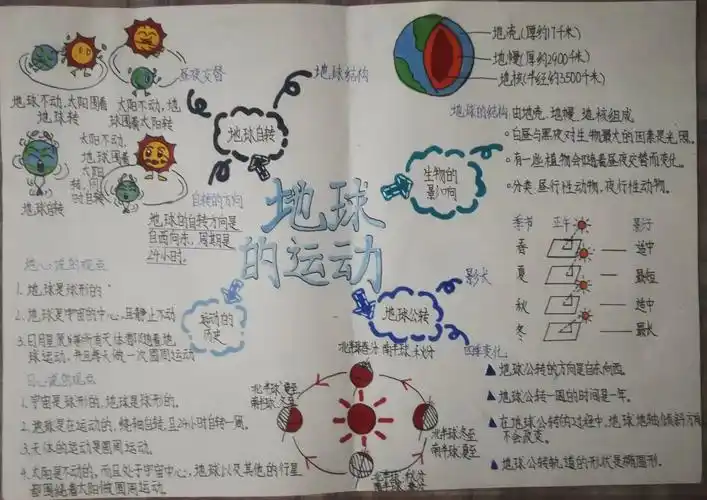 昼夜交替
地球不动,太阳围着
地球转
太阳不动,地
球围着太阳转
太阳不动,
地球围着
太阳
转,同
时自转
地球自转
地球自转
地球结构
自转的方向
地球的自转方向是
自西向东,周期是
24小时.
地壳(厚约17千米)
地幔(厚约2900千米)
地核(半径约3500千米)
地球的结构 由地壳、地幔、地核组成
生物的
影响
。白昼与黑夜对生物最大的因素是光照。
。有一些植物会随着昼夜交替而变化。
。分类:昼行性动物,夜行性动物。
地球
的运动
地心说的观点
1.地球是球形的
2.地球是宇宙的中心,且静止不动
3.日月星辰等所有天体都随着地
球运动,并且每天做一次圆周运动
运动的
历史
日心说的观点
1.宇宙是球形的,地球是球形的。
2.地球是在运动的,绕轴自转,且24小时自转一周。
3.天体的运动是圆周运动。
4.太阳是不动的,而且处于宇宙中心,地球以及其他的行星
都围绕着太阳做圆周运动。
地球公转
影长
四季变化
季节 正午 影子
春 适中
夏 最短
秋 适中
冬 最长
北半球春分 南半球秋分
北半球夏至
南半球冬至
北半球冬至
南半球夏至
北半球秋分
南半球春分
▲地球公转的方向是自东向西。
▲地球公转一周的时间是一年。
▲在地球公转的过程中,地球地轴倾斜方向
不会改变。
▲地球公转轨道的形状是椭圆形.